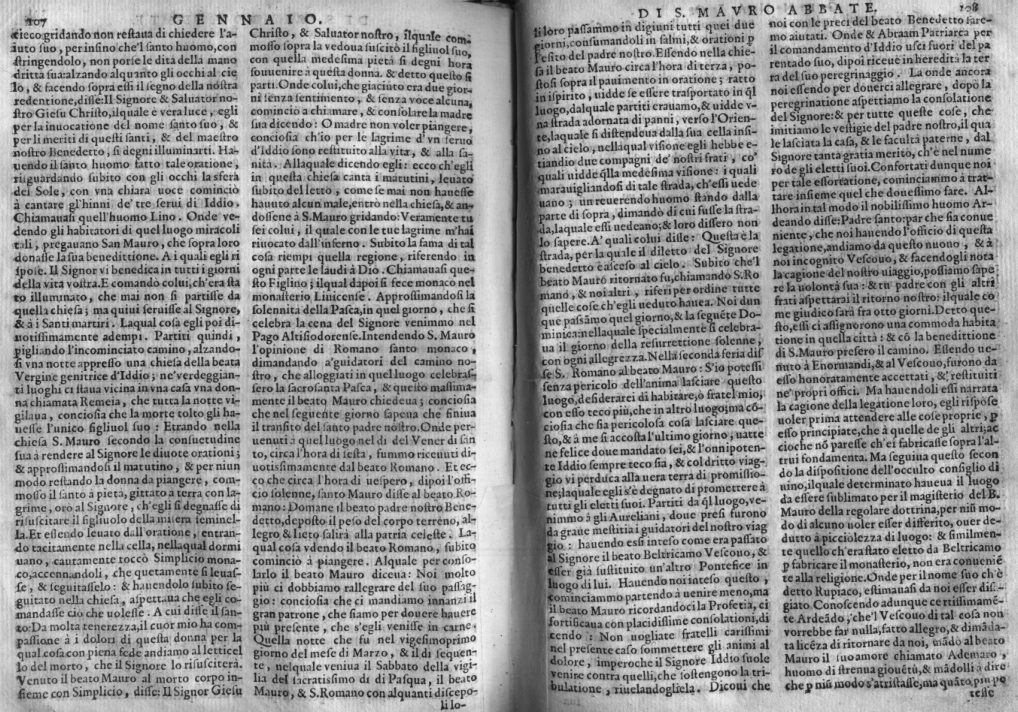 207 GENNAIO.
cieco: gridando non restaua di chiedere l'a-
iuto suo, per insino che'l santo huomo, con
stringendolo, non porse le dita della mano
dritta sua: alzando alquanto gli occhi al cie
lo, & facendo sopra essi il segno della nostra
redentione, disse: Il Signore & Saluator no-
stro Giesu Christo, ilquale è vera luce, egli
per la inuocatione del nome santo suo, &
per li meriti di questi santi, & del maestro
nostro Benedetto, si degni illuminarti. Ha-
uendo il santo huomo fatto tale oratione,
risguardando subito con gli occhi la sfera
del Sole, con vna chiara uoce cominciò
à cantare gl'hinni de' tre serui di Iddio.
Chiamauasi quell'huomo Lino. Onde ve-
dendo gli habitatori di quel luogo miracoli
tali, pregauano San Mauro, che sopra loro
donasse la sua beneditione. A i quali egli ri
spose. Il Signor vi benedica in tutti i giorni
della vita vostra. E comandò colui, ch'era sta
to illuminato, che mai non si partisse da
quella chiesa; ma quiui seruisse al Signore,
& à i Santi martiri. Laqual cosa egli poi di-
uotissimamente adempì. Partiti quindi,
pigliando l'incominciato camino, alzando-
si vna notte appresso una chiesa della beata
Vergine genitrice d'Iddio; ne' verdeggian-
ti luoghi ci staua vicina in vna casa vna don-
na chiamata Remeia, che tutta la notte vi-
gilaua, conciosia che la morte tolto gli ha-
uesse l'unico figliuol suo: Etrando nella
chiesa S. Mauro secondo la consuetudine
sua à rendere al Signore le diuote orationi;
& approssimandosi il matutino, & per niun
modo restando la donda piangere, com-
mosso il santo à pietà, gittato a terra con la-
grime, orò al Signore, ch'egli si degnasse di
risuscitare il figliuolo della misera feminel-
la. Et essendo leuato dall'oratione, entran-
do tacitamente nella cella, nellaqual dormi
uano, cautamente toccò Simplicio mona-
co, accennandoli, che quetamente si leuas-
se, & seguitasselo: & hauendolo subito se-
guitato nella chiesa, aspettaua che egli co-
mandasse ciò che volesse. A cui disse il san-
to: Da molta tenerezza, il cuor mio ha com-
passione à i dolori di questa donna per la
qual cosa con piena fede andiamo al letticel
lo del morto, che il Signore lo risusciterà.
Venuto il beato Mauro al morto corpo in-
sieme con Simplicio, disse: Il Signor Giesu
Christo, & Saluator nostro, ilquale com-
mosso sopra la vedoua suscitò il figliuol suo,
con quella medesima pietà si degni hora
souuenire à questa donna. & detto questo si
partì. Onde colui, che giaciuto era due gior-
ni senza sentimento, & senza voce alcuna,
cominciò a chiamare, & consolare la madre
sua dicendo: O madre non voler piangere,
conciosia ch'io per le lagrime d'vn seruo
d'Iddio sono restituito alla vita, & alla sa-
nità. Allaquale dicendo egli: ecco ch'egli
in questa chiesa canta i matutini, leuato
subito del letto, come se mai non hauesse
hauuto alcun male, entrò nella chiesa, & an-
dossene à S. Mauro gridando: Veramente tu
sei colui, il quale con le tue lagrime m'hai
riuocato dall'inferno. Subito la fama di tal
cosa riempì quella regione, riferendo in
ogni parte le laudi à Dio. Chiamauasi que-
sto Figlino; ilqual dapoi si fece monaco nel
monasterio Linicense. Approssimandosi la
solennità della Pasca, in quel giorno, che si
celebra la cena del Signore venimmo nel
Pago Altisiodorense. Intendendo S. Mauro
l'opinione di Romano santo monaco,
dimandando a'guidatori del camino no-
stro, che alloggiati in quel luogo celebras-
sero la sacrosanta Pasca, & questo massima-
mente il beato Mauro chiedeua; conciosia
che nel seguente giorno sapeua che finiua
il transito del santo padre nostro. Onde per-
uenuti a quel luogo nel dì del Vener dì san
to, circa l'hora di sesta, fummo riceuuti di-
uotissimamente dal beato Romano. Et ec-
co che circa l'hora di uespero, dipoi l'offi-
cio solenne, santo Mauro disse al beato Ro-
mano: Domane il beato padre nostro Bene-
detto, deposto il peso del corpo terreno, al-
legro & lieto salirà alla patria celeste. La-
qual cosa vdendo il beato Romano, subito
cominciò à piangere. Alquale per conso-
larlo il beato Mauro diceua: Noi molto
più ci dobbiamo rallegrare del suo passag-
gio: conciosia che ci mandiamo innanzi il
gran patrone, che siamo per douere hauere
più presente, che s'egli venisse in carne.
Quella notte che fu nel vigesimoprimo
giorno del mese di Marzo, & il dì sequen-
te, nelquale veniua il Sabbato della vigi-
lia del sacratissimo dì di Pasqua, il beato
Mauro, & S. Romano con alquanti discepo-
li lo-
DI S. MAVRO ABBATE. 208
li loro passammo in digiuni tutti quei due
giorni, consumandoli in salmi, & orationi p
l'esito del padre nostro. Essendo nella chie-
sa il beato Mauro circa l'hora di terza, po-
stosi sopra il pauimento in oratione; ratto
in ispirito, uidde se essere trasportato in ql
luogo, dalquale partiti erauamo, & uidde v-
na strada adornata di panni, verso l'Orien-
te, laquale si distendeua dalla sua cella insi-
no al cielo, nellaqual visione egli hebbe e-
tiandio due compagni de' nostri frati, co'
quali uidde qlla medesima visione: i quali
marauigliandosi di tale strada, ch'essi uede
uano; un reuerendo huomo stando dalla
parte di sopra, dimandò di cui fusse la stra-
da, laquale essi uedeano; & loro dissero non
lo sapere. A' quali colui disse: Questa è la
strada, per la quale il diletto del Signore
benedetto è asceso al cielo. Subito che'l
beato Mauro ritornato fu, chiamando S. Ro
mano, & noi altri, riferì per ordine tutte
quelle cose ch'egli ueduto hauea. Noi dun
que passãmo quel giorno, & la seguẽte Do-
minica: nellaquale specialmente si celebra-
ua il giorno della resurrettione solenne,
con ogni allegrezza. Nella seconda feria dis
se S. Romano al beato Mauro: S'io potessi
senza pericolo dell'anima lasciare questo
luogo, desiderarei di habitare, o fratel mio,
con esso teco più, che in altro luogo; ma cõ-
ciosia che sia pericolosa cosa lasciare que-
sto, & à me si accosta l'ultimo giorno; uatte
ne felice doue mandato sei, & l'onnipoten-
te Iddio sempre teco sia, & col dritto viag-
gio vi perduca alla uera terra di promissio-
ne; laquale egli s'è degnato di promettere à
tutti gli eletti suoi. Partiti da ql luogo, ve-
nimmo à gli Aureliani, doue presi furono
da graue mestitia i guidatori del nostro viag
gio: hauendo essi inteso come era passato
al Signore il beato Beltricamo Vescouo, &
esser già sustituito un'altro Pontefice in
luogo di lui. Hauendo noi inteso questo,
cominciammo partendo à uenire meno, ma
il beato Mauro ricordandoci la Profetia, ci
fortificaua con placidissime consolationi, di
cendo: Non uogliate fratelli carissimi
nel presente caso sommettere gli animi al
dolore, imperoche il Signore Iddio suole
venire contra quelli, che sostengono la tri-
bulatione, riuelandogliela. Dicoui che
noi con le preci del beato Benedetto sare-
mo aiutati. Onde & Abraam Patriarca per
il comandamento d'Iddio uscì fuori del pa
rentado suo, dipoi riceuè in heredità la ter
ra del suo peregrinaggio. La onde ancora
noi essendo per douerci allegrare, dopò la
peregrinatione aspettiamo la consolatione
del Signore: & per tutte queste cose, che
imitiamo le vestigie del padre nostro, il qua
le lasciata la casa, & le facultà paterne, dal
Signore tanta gratia meritò, ch'è nel nume
ro de gli eletti suoi. Confortati dunque noi
per tale essortatione, cominciammo à trat-
tare insieme quel che douessimo fare. Al-
lhora in tal modo il nobilissimo huomo Ar-
deando disse: Padre santo: par che sia conue
niente, che noi hauendo l'officio di questa
legatione, andiamo da questo nuouo, & à
noi incognito Vescouo, & facendogli nota
la cagione del nostro uiaggio, possiamo sape
re la uolontà sua: & tu padre con gli altri
frati aspettarai il ritorno nostro: ilquale co
me giudico sarà fra otto giorni. Detto que-
sto, essi ci assignorono una commoda habita
tione in quella città: & cõ la benedittione
di S. Mauro presero il camino. Essendo ue-
nuto à Enormandi, & al Vescouo, furono da
esso honoratamente accettati, & restituiti
ne' propri offici. Ma hauendoli essi narrata
la cagione della legatione loro, egli rispose
uoler prima attendere alle cose proprie, p
esso principiate, che à quelle de gli altri; ac
cioche nõ paresse ch'ei fabricasse sopra l'al-
trui fondamenta. Ma seguiua questo secon
do la dispositione dell'occulto consiglio di
uino, ilquale determinato haueua il luogo
da essere sublimato per il magisterio del B.
Mauro della regolare dottrina, per nisi mo-
do di alcuno uoler esser differito, ouer de-
dutto à picciolezza di luogo: & similmen-
te quello ch'era stato eletto da Beltricamo
p fabricare il monasterio, non era conueniẽ
te alla religione. Onde per il nome suo ch'è
detto Rupiaco, estimauasi da noi esser dis-
giato. Conoscendo adunque certissimamẽ-
te Ardeãdo, che'l Vescouo di tal cosa non
vorrebbe far nulla, fatto allegro, & dimãda-
ta licẽza di ritornare da noi, mãdò al beato
Mauro il suo amore chiamato Ademaro,
huomo di strenua giouẽtù, & mãdolli à dire
che p nisi modo s'atristasse, ma quãto piu po
tesse